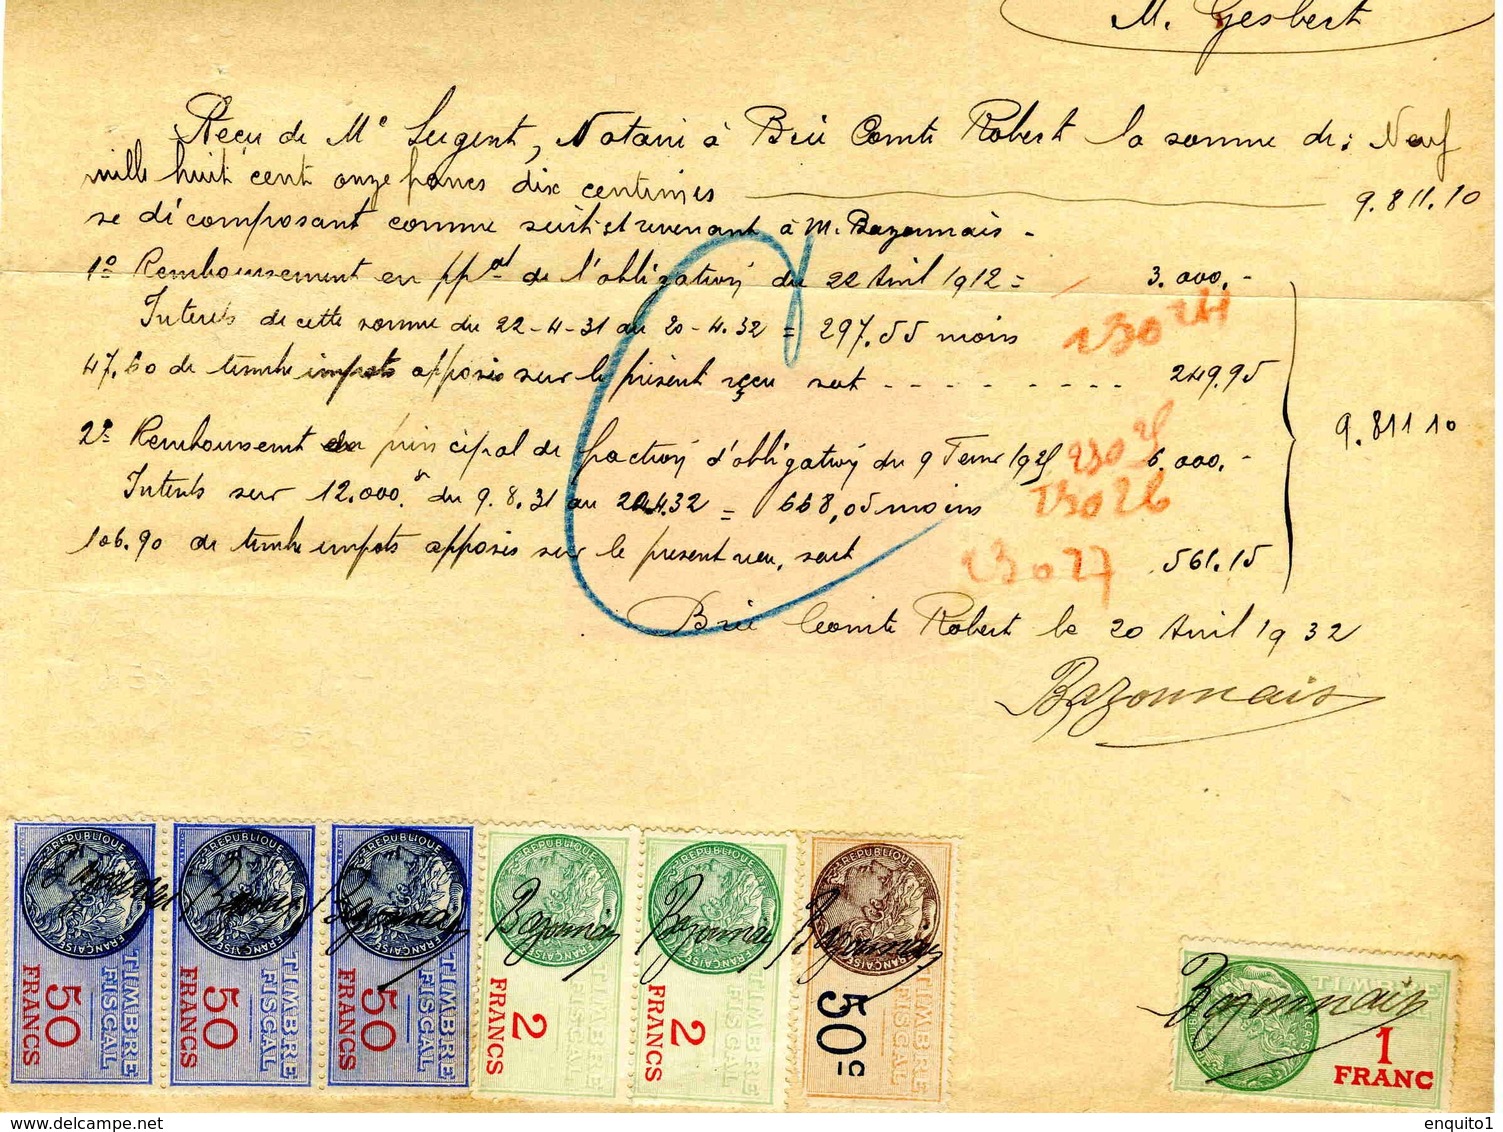 M. Gesbert
Reçu de Me Sergent, Notaire à Brie Comte Robert la somme de: Neuf
mille huit cent onze francs dix centimes 9.811.10
se décomposant comme suit et revenant à M. Bazonnais -
1º Remboursement en ppal de l'obligation du 22 Avril 1912 = 3.000.-
Interêts de cette somme du 22-4-31 au 20-4.32 = 297.55 moins 13024
47.60 de timbre impots apposés sur le présent reçu soit - - - - - - - - - 249.95
9.811 10
2º Remboursement du principal de fraction d'obligation du 9 Fevr 1925 13025 6.000.-
Interêts sur 12.000. du 9.8.31 au 20.4.32 = 668,05 moins 13026
106.90 de timbre impots apposés sur le présent reçu, soit 561.15
13027
Brie Comte Robert le 20 Avril 1932
Bazonnais
REPUBLIQUE FRANÇAISE TIMBRE FISCAL 50 FRANCS Bazonnais
REPUBLIQUE FRANÇAISE TIMBRE FISCAL 50 FRANCS Bazonnais
REPUBLIQUE FRANÇAISE TIMBRE FISCAL 50 FRANCS Bazonnais
REPUBLIQUE FRANÇAISE TIMBRE FISCAL 2 FRANCS Bazonnais
REPUBLIQUE FRANÇAISE TIMBRE FISCAL 2 FRANCS Bazonnais
REPUBLIQUE FRANÇAISE TIMBRE FISCAL 50c Bazonnais
TIMBRE 1 FRANC Bazonnais
www.delcampe.net
enquito1